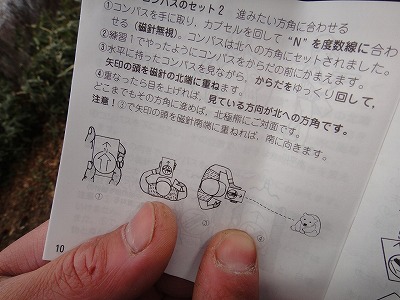 コンパスのセット2 進みたい方角に合わせる
①コンパスを手に取り、カプセルを回して"N"を度数線に合わ
せる(磁針無視)。コンパスは北への方角にセットされました。
②練習1でやったようにコンパスをからだの前にかまえます。
③水平に持ったコンパスを見ながら、からだをゆっくり回して、
矢印の頭を磁針の北端に重ねます。
④重なったら目を上げれば、見ている方向が北への方角です。
どこまでもその方角に進めば、北極熊にご対面です。
注意!③で矢印の頭を磁針南端に重ねれば、南に向きます。
①
③
④
10